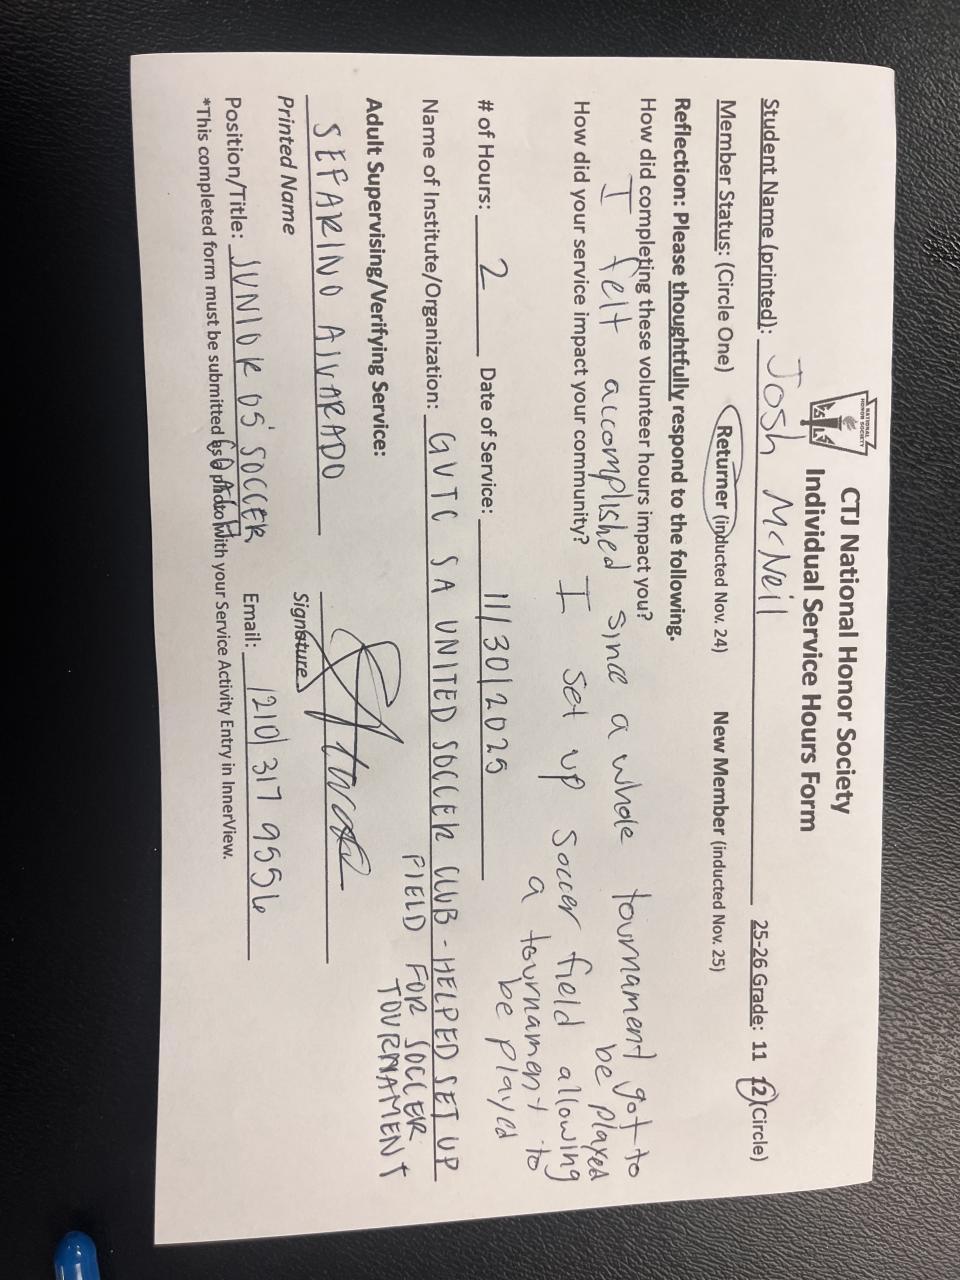 NATIONAL
HONOR SOCIETY
CTJ National Honor Society
Individual Service Hours Form
Student Name (printted): Josh McNeil 25-26 Grade: 11 12 (Circle)
Member Status: (Circle One) Returner (inducted Nov. 24) New Member (inducted Nov. 25)
Reflection: Please thoughtfully respond to the following.
How did completing these volunteer hours impact you?
I felt accomplished since a whole tournament got to
be played
How did your service impact your community? I set up soccer field allowing
a tournament to
be played
# of Hours: 2 Date of Service: 11/30/2025
Name of Institute/Organization: GVTC SA UNITED SOCCER CLUB - HELPED SET UP
FIELD FOR SOCCER
TOURNAMENT
Adult Supervising/Verifying Service:
SEFARINO AlVARADO
Printed Name Signature
Position/Title: JUNIOR 05' SOCCER Email: (210) 317 9556
*This completed form must be submitted as a photo with your Service Activity Entry in InnerView.